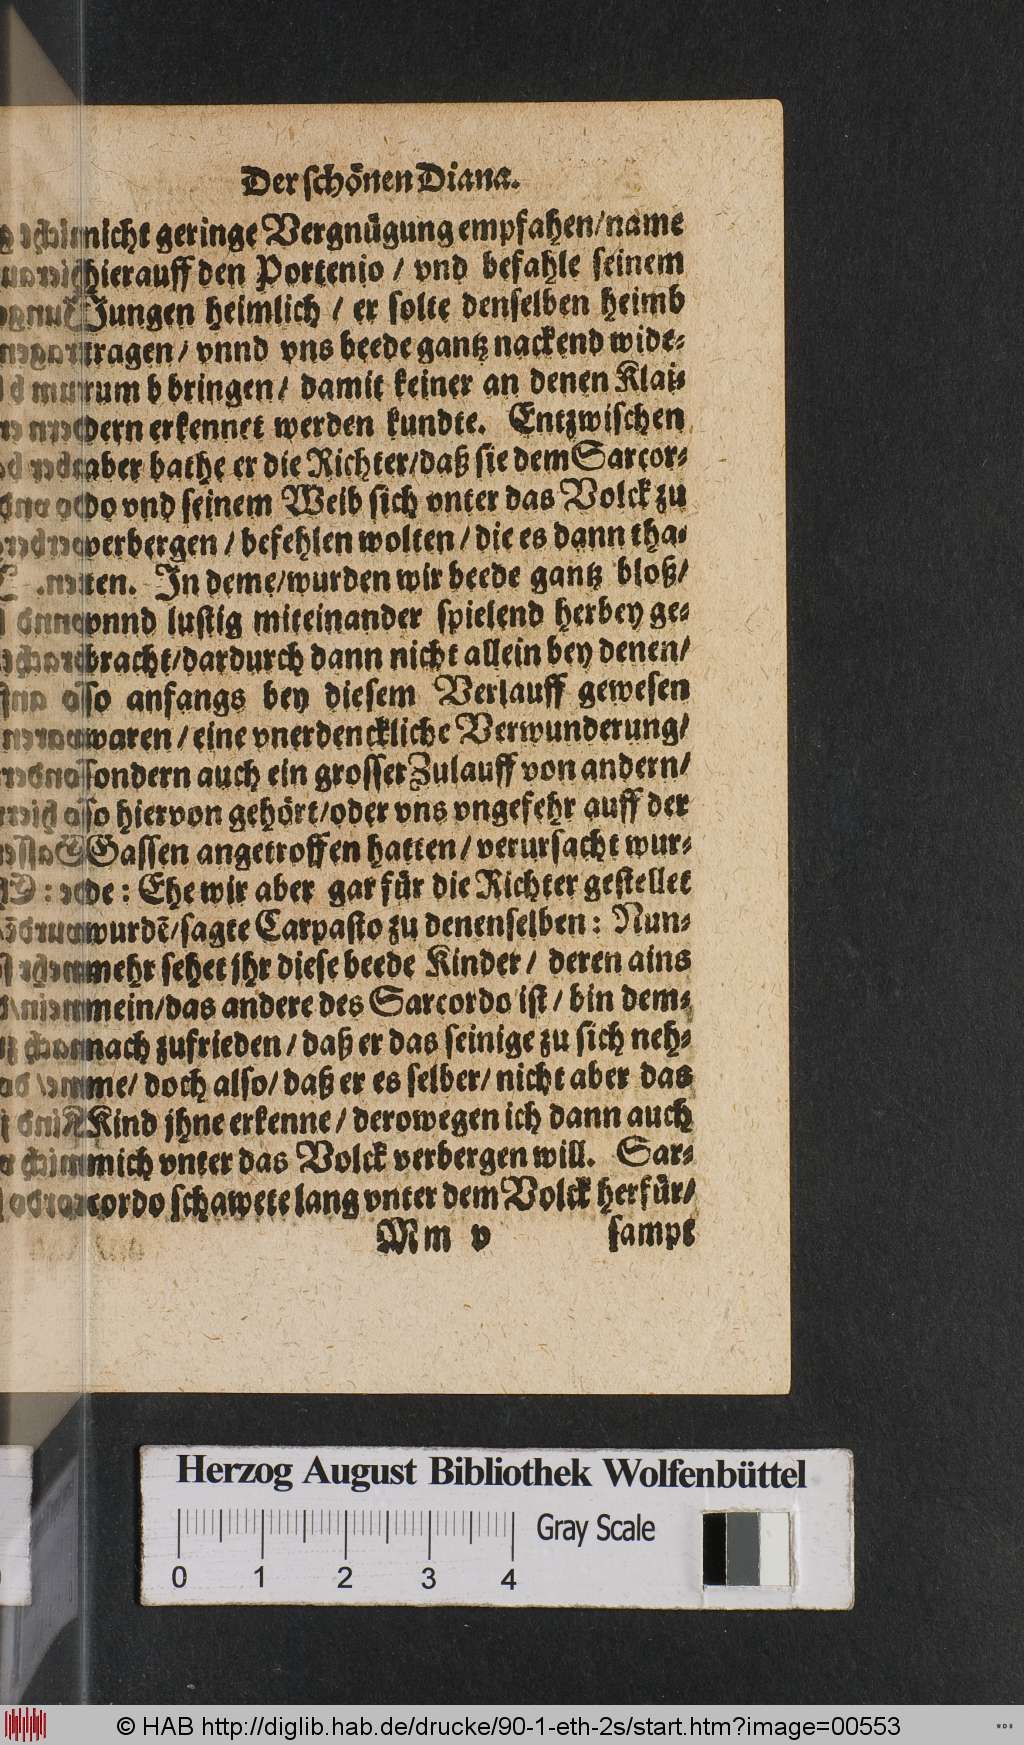 Der schönen Diana.
nicht geringe Vergnügung empfahen/name
hierauff den Portenio / vnd befahle seinem
Jungen heimlich / er solte denselben heimb
tragen/ vnnd vns beede gantz nackend wide-
rum b bringen/ damit keiner an denen Klai-
dern erkennet werden kundte. Entzwischen
aber bathe er die Richter/daß sie dem Sarcor-
do vnd seinem Weib sich vnter das Volck zu
verbergen / befehlen wolten / die es dann tha-
ten. In deme/wurden wir beede gantz bloß/
vnnd lustig miteinander spielend herbey ge-
bracht/dardurch dann nicht allein bey denen/
so anfangs bey diesem Verlauff gewesen
waren/eine vnerdenckliche Verwunderung/
sondern auch ein grosser Zulauff von andern/
so hiervon gehört/oder vns vngefehr auff der
Gassen angetroffen hatten/ verursacht wur-
de: Ehe wir aber gar für die Richter gestellet
wurdē/sagte Carpasto zu denenselben: Nun-
mehr sehet jhr diese beede Kinder/ deren ains
mein/das andere des Sarcordo ist/ bin dem-
nach zufrieden/ daß er das seinige zu sich neh-
me/ doch also/ daß er es selber/ nicht aber das
Kind jhne erkenne/ derowegen ich dann auch
mich vnter das Volck verbergen will. Sar-
cordo schawete lang vnter dem Volck herfür/
Mm v sampt
Herzog August Bibliothek Wolfenbüttel
Gray Scale
0 1 2 3 4
© HAB http://diglib.hab.de/drucke/90-1-eth-2s/start.htm?image=00553